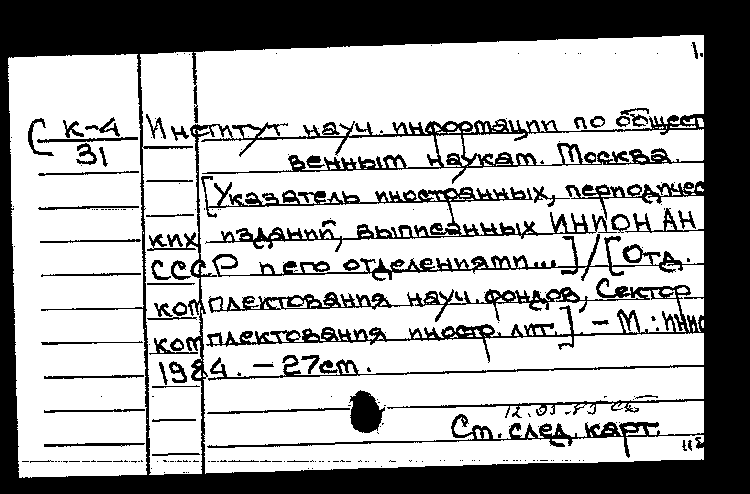 1.
К-4 Институт науч. информации по общест
31 венным наукам. Москва.
[Указатель иностранных, периодичес
ких изданий, выписанных ИНИОН АН
СССР и его отделениями...] / [Отд.
комплектования науч. фондов, Сектор
комплектования иностр. лит.]. – М.: ИНИО
1984. – 27см.
12.03.85
См. след. карт.